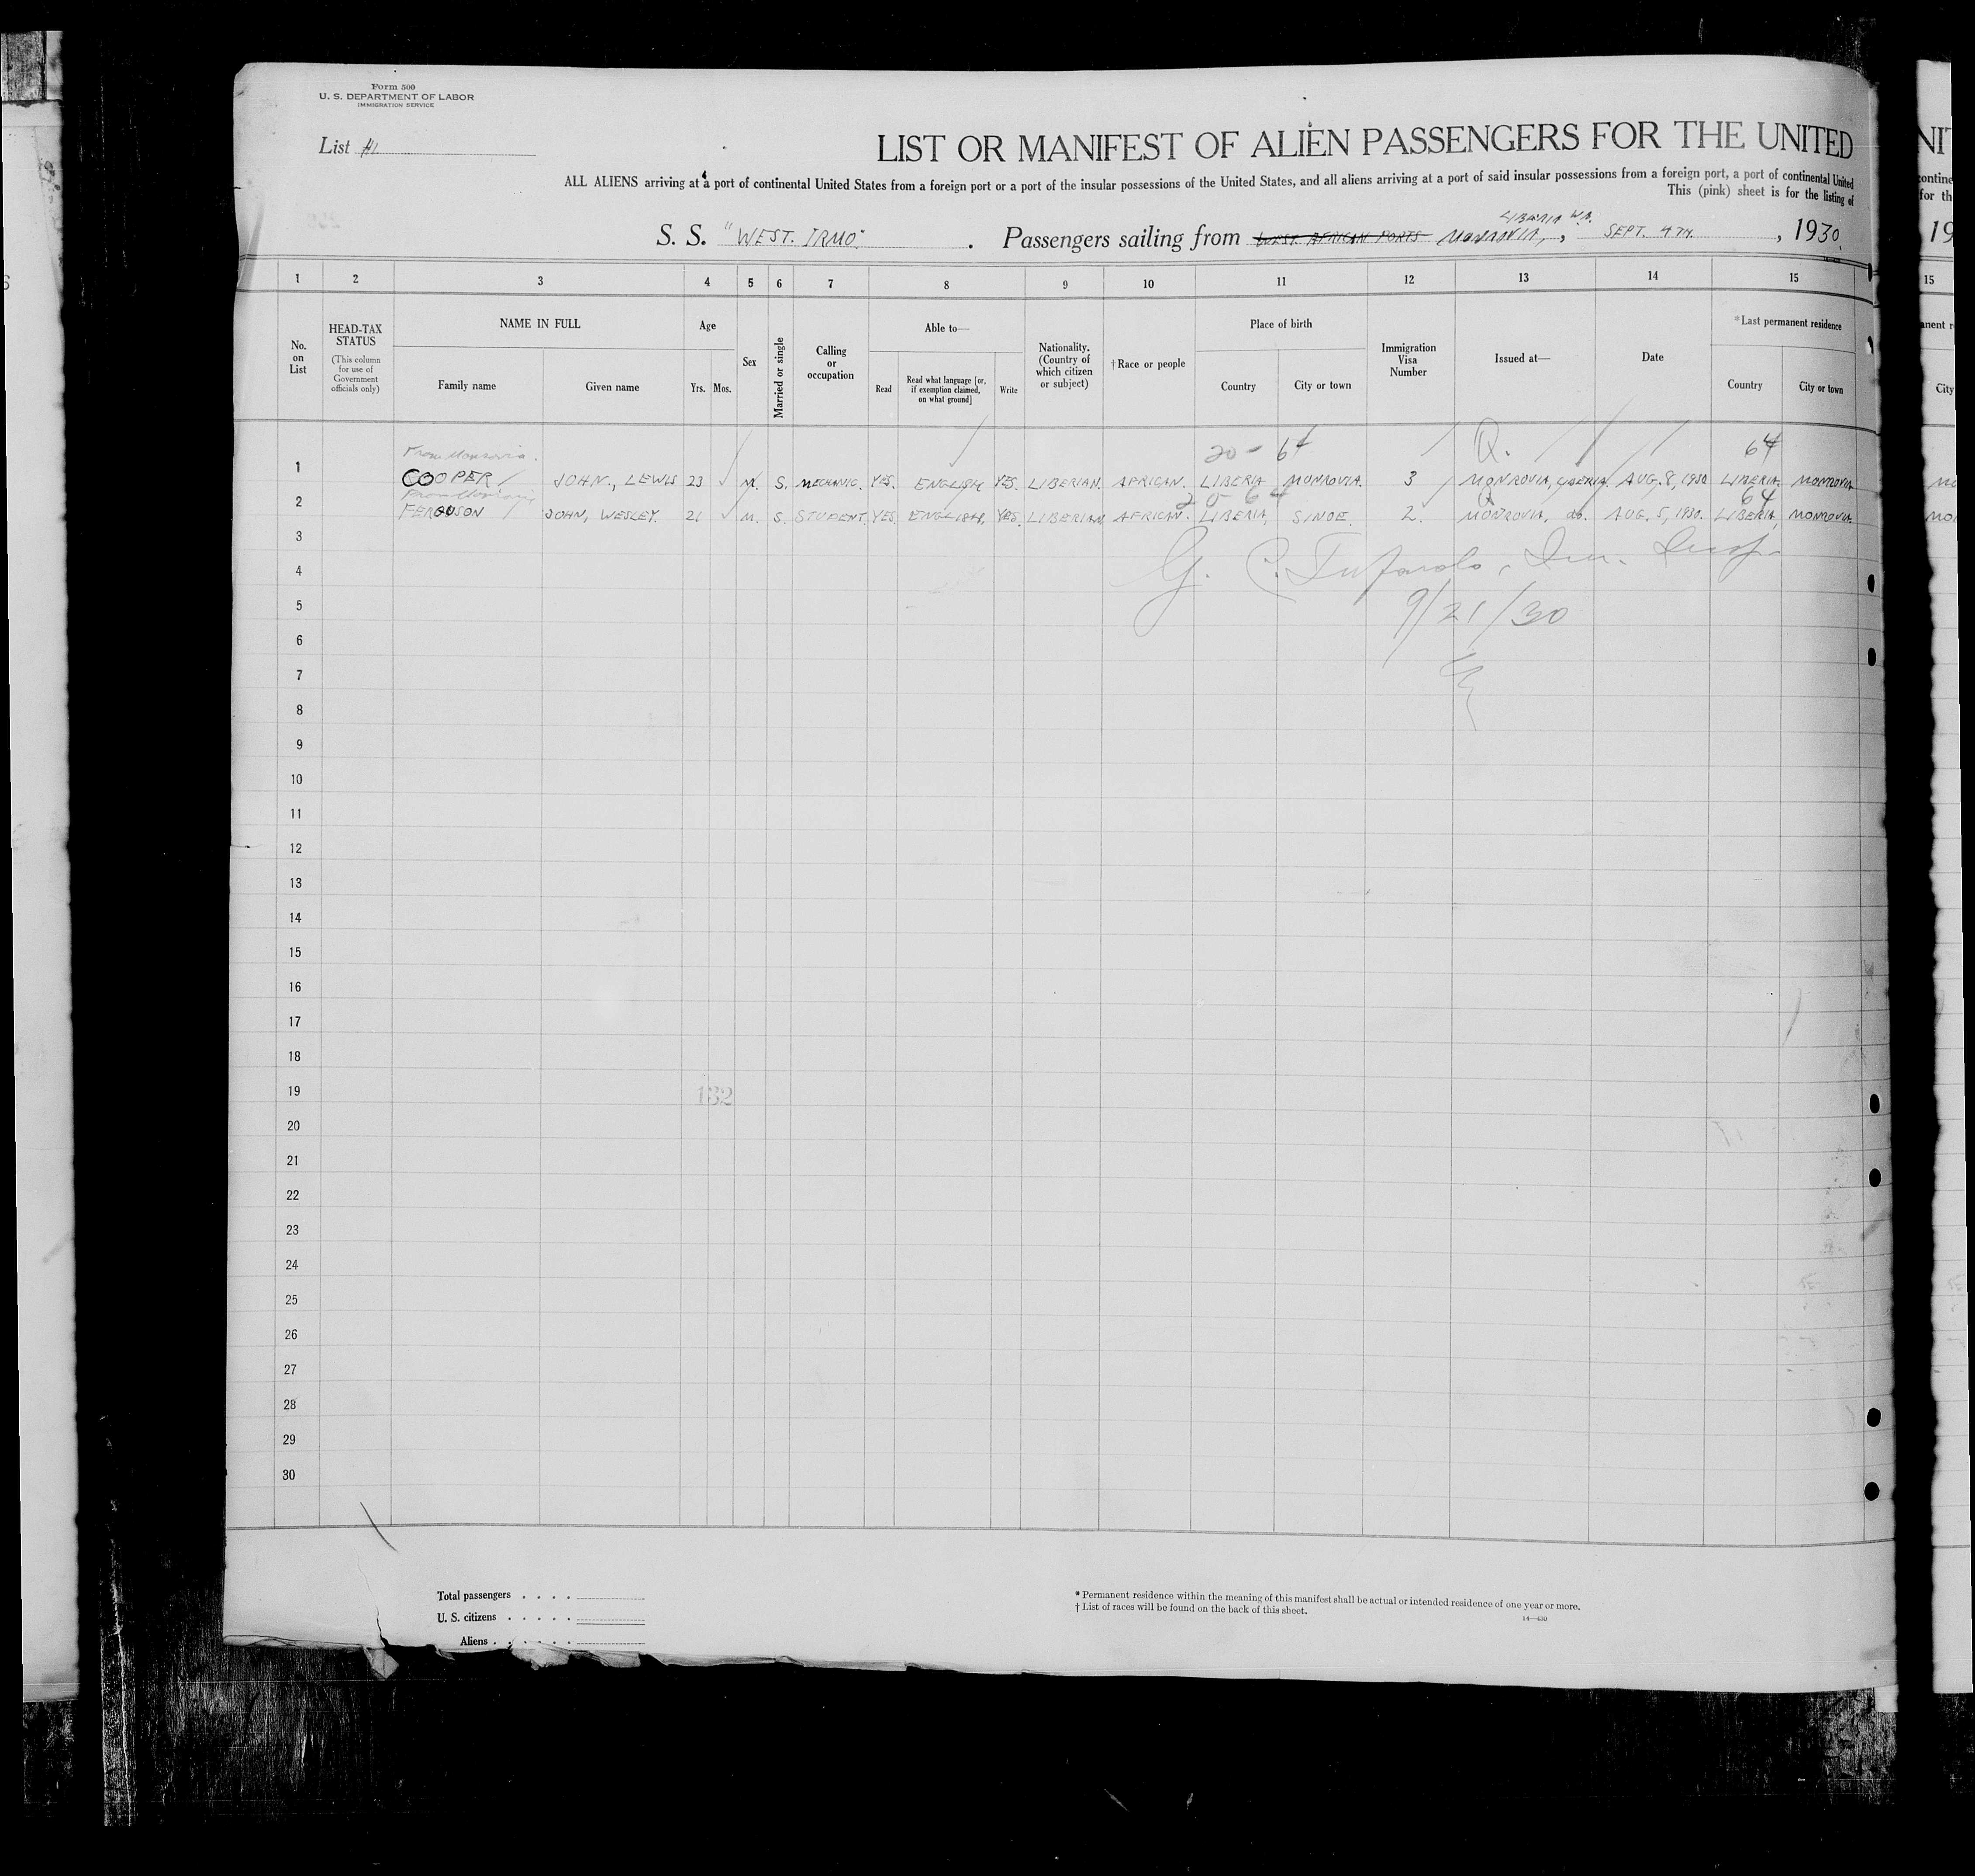 Form 500
U. S. DEPARTMENT OF LABOR
IMMIGRATION SERVICE
List #1
LIST OR MANIFEST OF ALIEN PASSENGERS FOR THE UNITED
ALL ALIENS arriving at a port of continental United States from a foreign port or a port of the insular possessions of the United States, and all aliens arriving at a port of said insular possessions from a foreign port, a port of continental United
This (pink) sheet is for the listing of
LIBERIA W.A.
S. S. "WEST. IRMO". Passengers sailing from WEST AFRICAN PORTS MONROVIA, , SEPT. 4TH. , 1930.
1 2 3 4 5 6 7 8 9 10 11 12 13 14 15
No. on List
HEAD-TAX STATUS
(This column for use of Government officials only)
NAME IN FULL
Family name Given name
Age
Yrs. Mos.
Sex
Married or single
Calling or occupation
Able to—
Read
Read what language [or, if exemption claimed, on what ground]
Write
Nationality. (Country of which citizen or subject)
†Race or people
Place of birth
Country City or town
Immigration Visa Number
Issued at—
Date
*Last permanent residence
Country City or town
From Monrovia. 20 - 64 Q. 64
1 COOPER JOHN., LEWIS 23 M. S. MECHANIC. YES. ENGLISH YES. LIBERIAN. AFRICAN. LIBERIA MONROVIA. 3 MONROVIA, LIBERIA. AUG. 8, 1930 LIBERIA. MONROVIA
From Monrovia 20 64 Q 64
2 FERGUSON JOHN, WESLEY. 21 M. S. STUDENT. YES. ENGLISH. YES. LIBERIAN AFRICAN. LIBERIA, SINOE. 2. MONROVIA, do. AUG. 5, 1930. LIBERIA, MONROVIA.
3
4
5
9/21/30
6
7
8
9
10
11
12
13
14
15
16
17
18
19
132
20
21
22
23
24
25
26
27
28
29
30
Total passengers . . . .
U. S. citizens . . . . .
Aliens . . . . . .
* Permanent residence within the meaning of this manifest shall be actual or intended residence of one year or more.
† List of races will be found on the back of this sheet.
14—430